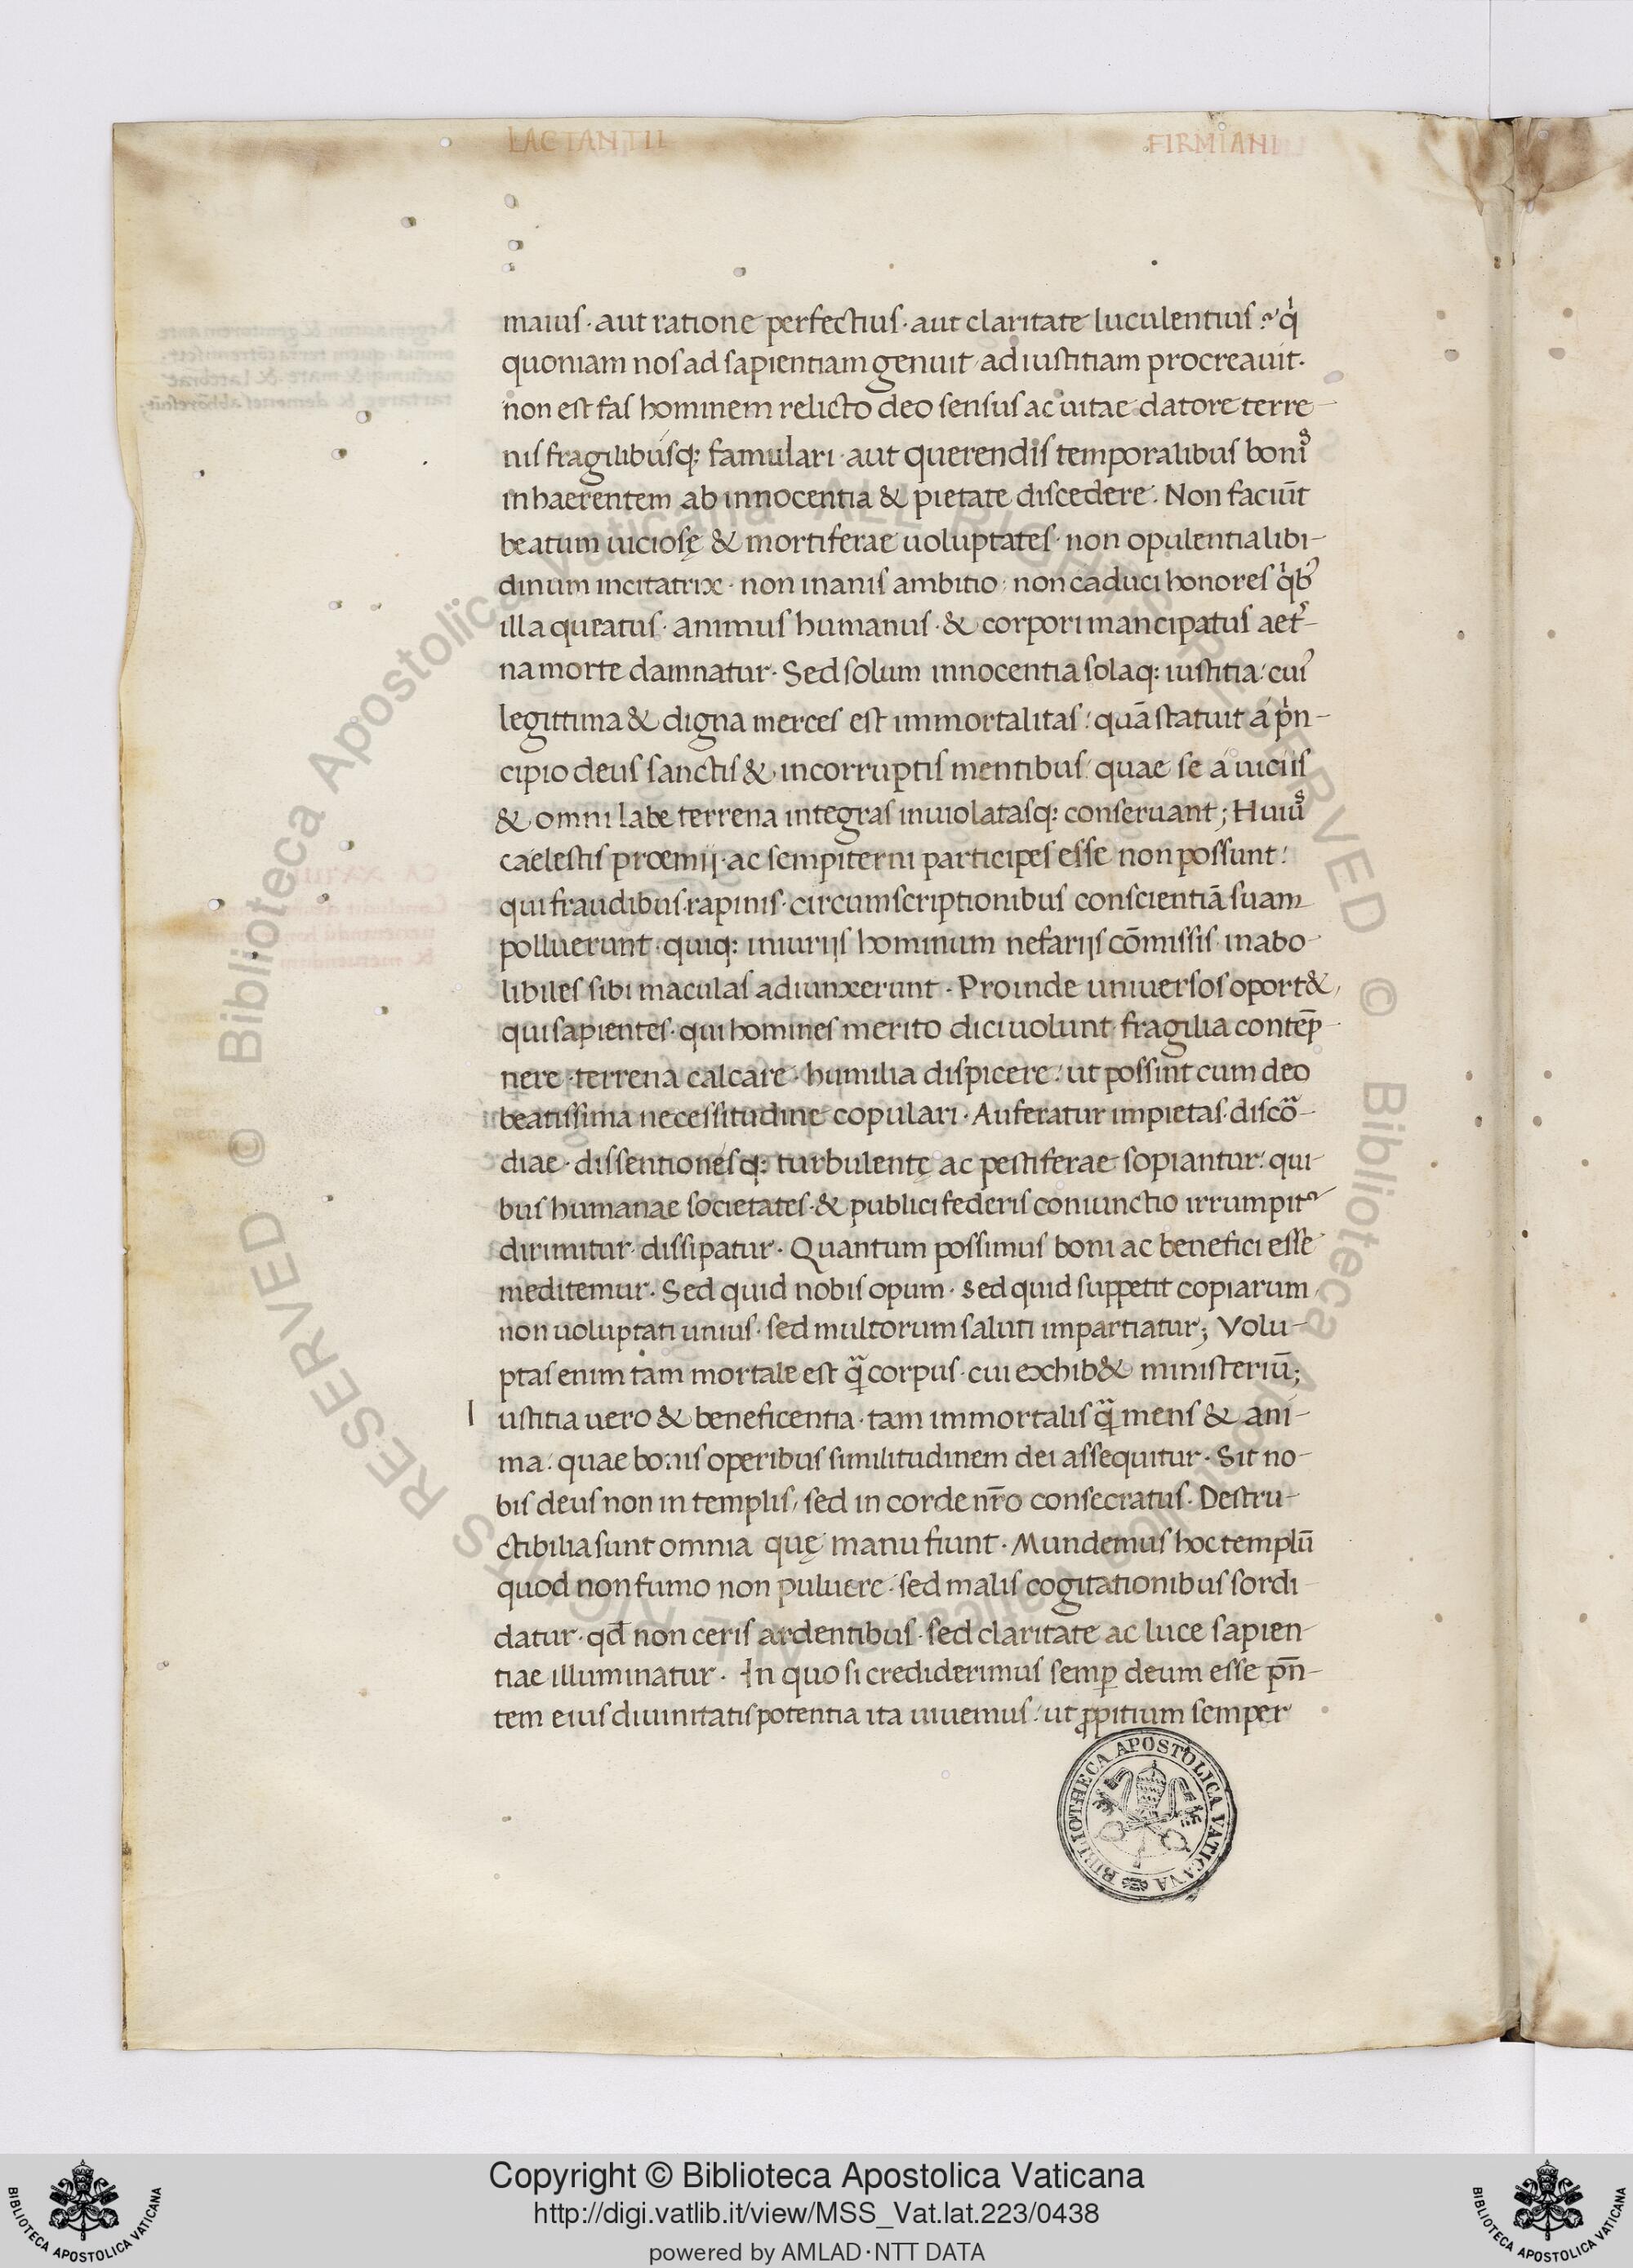 LACTANTII FIRMIANI
maius · aut ratione perfectius · aut claritate luculentius? q̍
quoniam nos ad sapientiam genuit · ad iustitiam procreauit ·
non est fas hominem relicto deo sensus ac uitae datore terre-
nis fragilibusq: famulari · aut querendis temporalibus bonis
inhaerentem ab innocentia & pietate discedere · Non faciūt
beatum uiciosę & mortiferae uoluptates · non opulentia libi-
dinum incitatrix · non inanis ambitio · non caduci honores q̍b᾽
illaqueatus · animus humanus · & corpori mancipatus aet᾽-
na morte damnatur · Sed solum innocentia solaq: iustitia: cui᾽
legittima & digna merces est immortalitas: quā statuit a p̍n-
cipio deus sanctis & incorruptis mentibus: quae se a uiciis
& omni labe terrena integras inuiolatasq: conseruant; Huius
caelestis proemij · ac sempiterni participes esse non possunt:
qui fraudibus · rapinis · circumscriptionibus conscientiā suam
polluerunt · quiq: iniurijs hominum nefarijs cōmissis · inabo-
libiles sibi maculas adiunxerunt · Proinde uniuersos oport&,
qui sapientes · qui homines merito dici uolunt fragilia contēp-
nere · terrena calcare · humilia dispicere: ut possint cum deo
beatissima necessitudine copulari · Auferatur impietas · discō-
diae · dissentionesq: turbulentę ac pestiferae sopiantur: qui-
bus humanae societates · & publici federis coniunctio irrumpit᾽
dirimitur · dissipatur · Quantum possimus boni ac benefici esse
meditemur · Sed quid nobis opum · sed quid suppetit copiarum,
non uoluptati unius · sed multorum saluti impartiatur; Volu-
ptas enim tam mortale est q̄ corpus · cui exchib& ministeriū;
I ustitia uero & beneficentia · tam immortalis q̄ mens & ani-
ma: quae bonis operibus similitudinem dei assequitur · Sit no-
bis deus non in templis, sed in corde nr̄o consecratus · Destru-
ctibilia sunt omnia quę manu fiunt · Mundemus hoc templū
quod non fumo non puluere · sed malis cogitationibus sordi-
datur · qd̄ non ceris ardentibus · sed claritate ac luce sapien-
tiae illuminatur · In quo si crediderimus semꝑ deum esse p̄n-
tem eius diuinitatis potentia ita uiuemus: ut ꝓpitium semper
BIBLIOTHECA APOSTOLICA VATICANA
Copyright © Biblioteca Apostolica Vaticana
http://digi.vatlib.it/view/MSS_Vat.lat.223/0438
powered by AMLAD·NTT DATA
BIBLIOTECA APOSTOLICA VATICANA
BIBLIOTECA APOSTOLICA VATICANA